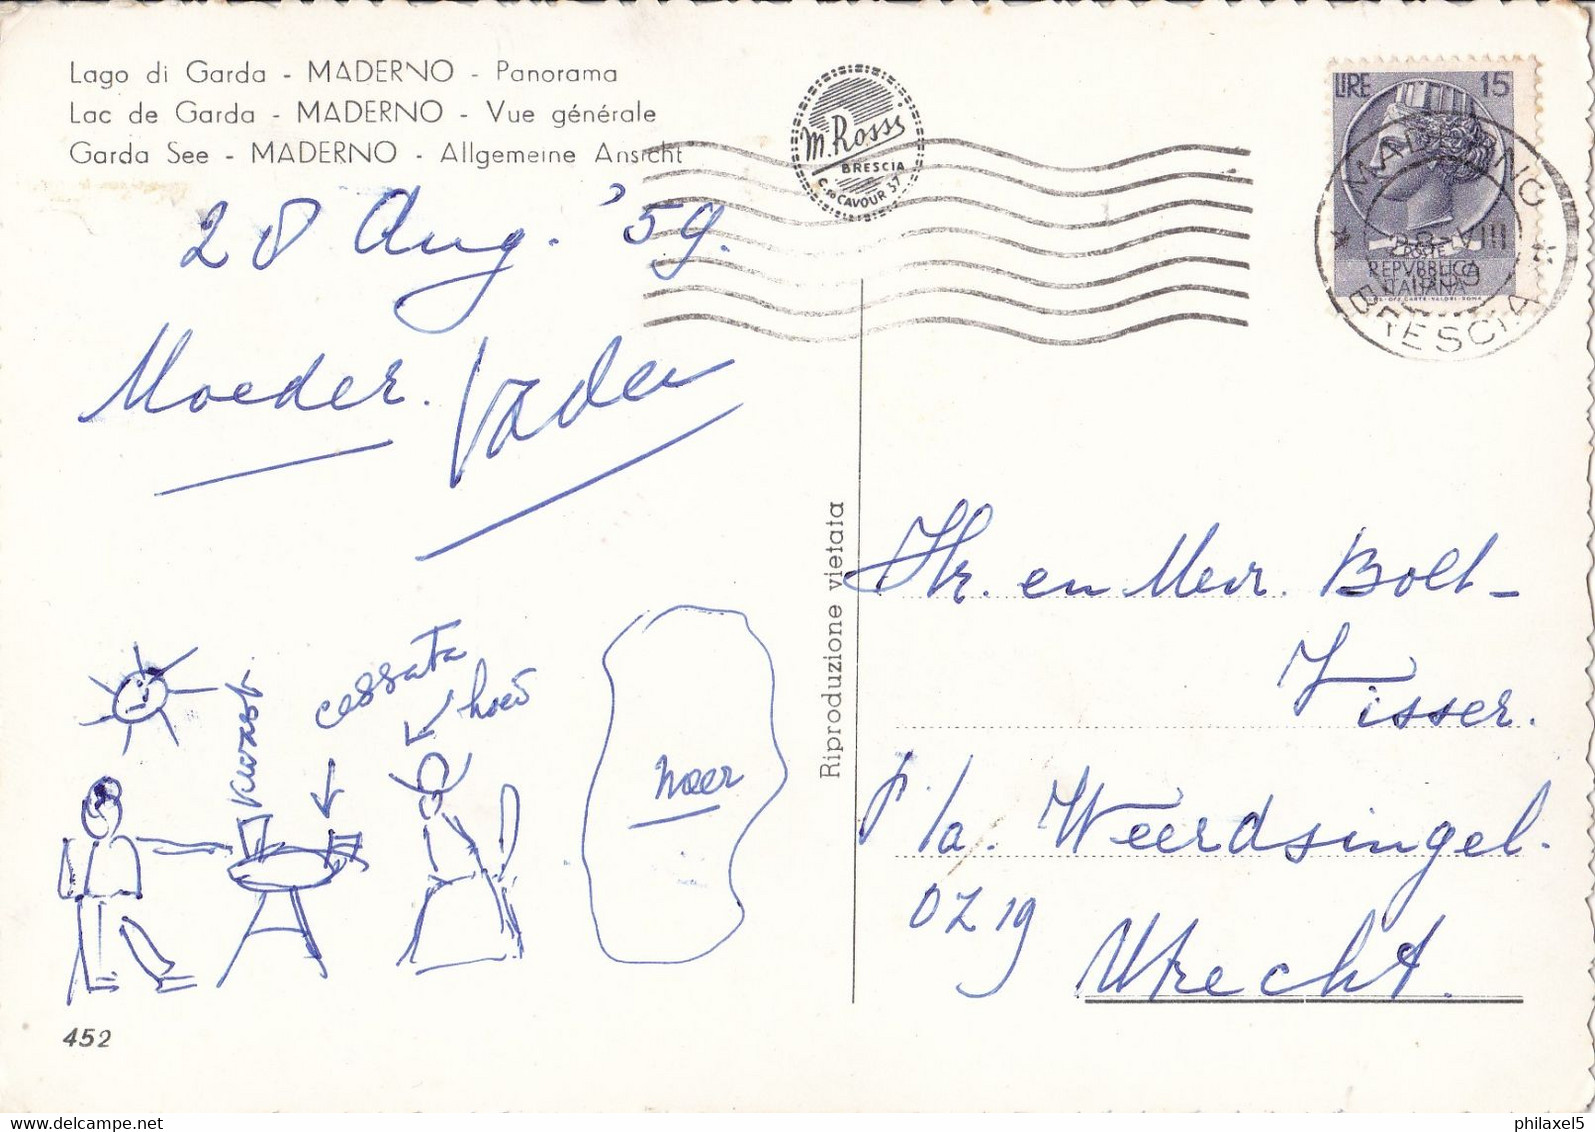 Lago di Garda - MADERNO - Panorama
Lac de Garda - MADERNO - Vue générale
Garda See - MADERNO - Allgemeine Ansicht
M. Rossi
BRESCIA
C.so CAVOUR 57
LIRE 15
POSTE
REPVBBLICA
ITALIANA
MADERNO
BRESCIA
28 Aug. '59.
Moeder. Vader
Riproduzione vietata
Hr. en Mevr. Bolt-
Visser.
p/a. Weerdsingel.
OZ 19
Utrecht.
kwast
cessata
hoed
meer
452
philaxel5